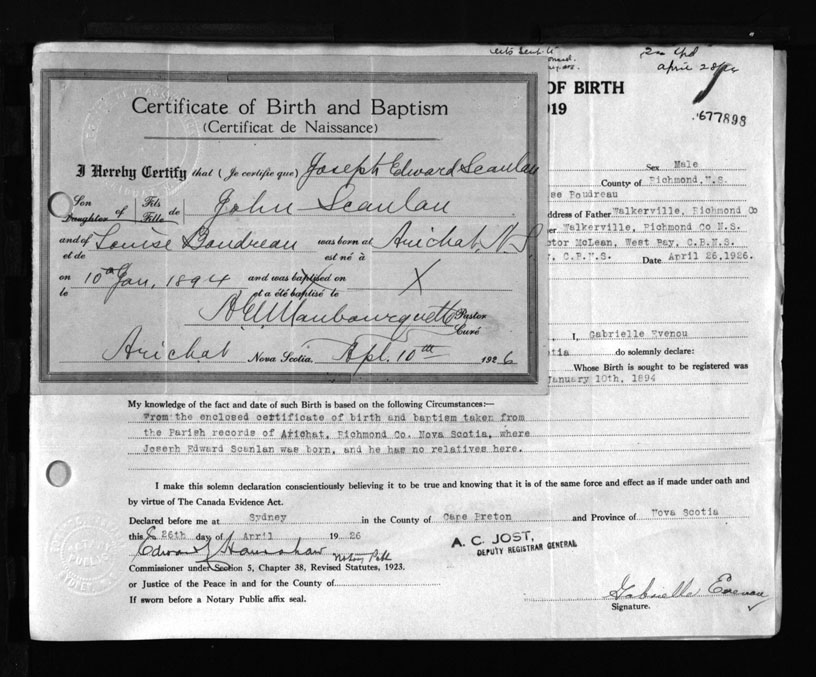 2n Cpd
april 28/26
OF BIRTH
919
677898
Certificate of Birth and Baptism
(Certificat de Naissance)
I Hereby Certify that (Je certifie que) Joseph Edward Scanlan
Son Daughter of Fils Fille de John Scanlan
and of et de Louise Boudreau was born at est né à Arichat, N.S.
on le 10th Jan, 1894 and was baptised on et a été baptisé le X
Pastor Curé
Arichat Nova Scotia, Apl. 10th 1926
Sex Male
County of Richmond, N.S.
se Boudreau
ddress of Father Walkerville, Richmond Co
er Walkerville, Richmond Co N.S.
ctor McLean, West Bay, C.B.N.S.
, C.B.N.S. Date April 26,1926.
, I, Gabrielle Evenou
tia do solemnly declare:
Whose Birth is sought to be registered was
January 10th, 1894
My knowledge of the fact and date of such Birth is based on the following Circumstances:—
From the enclosed certificate of birth and baptism taken from
the Parish records of Arichat, Richmond Co. Nova Scotia, where
Joseph Edward Scanlan was born, and he has no relatives here.
I make this solemn declaration conscientiously believing it to be true and knowing that it is of the same force and effect as if made under oath and
by virtue of The Canada Evidence Act.
Declared before me at Sydney in the County of Cape Breton and Province of Nova Scotia
this 26th day of April 1926
A. C. JOST,
DEPUTY REGISTRAR GENERAL
Notary Pub
Commissioner under Section 5, Chapter 38, Revised Statutes, 1923.
or Justice of the Peace in and for the County of
If sworn before a Notary Public affix seal.
Gabrielle Evenou
Signature.